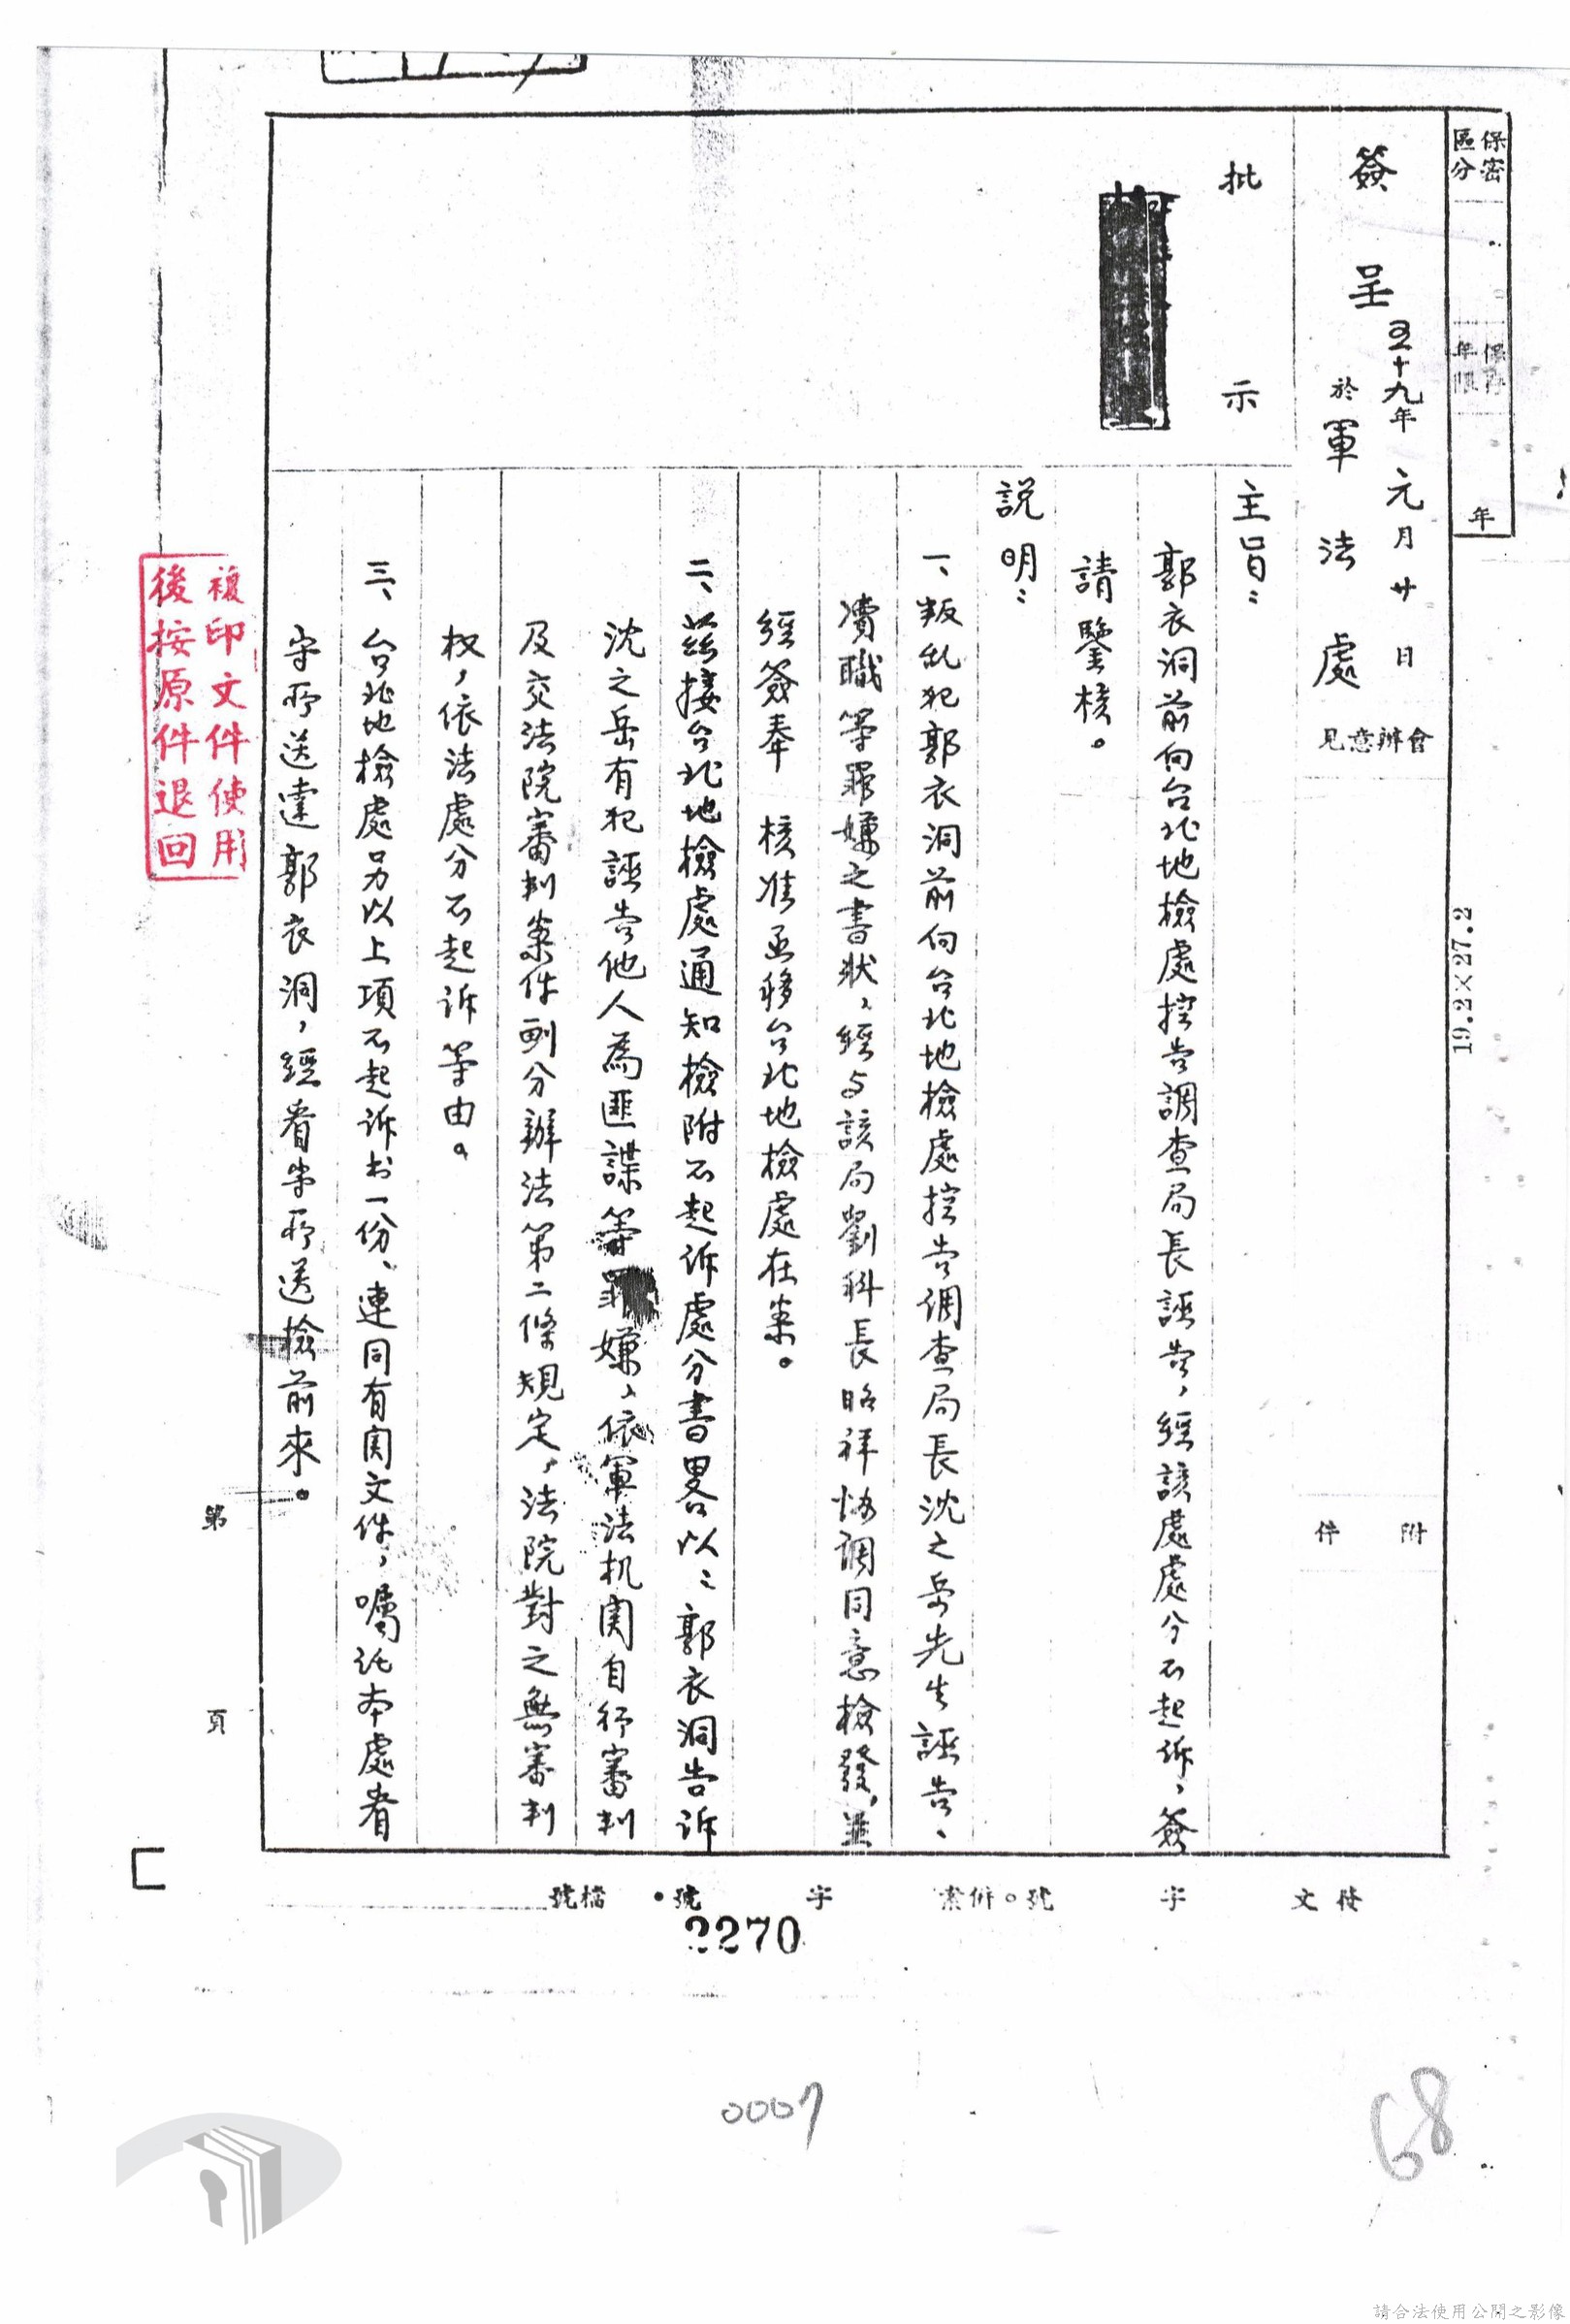 保密
區分
保存
年限
年
19.2×27.2
簽呈
五十九年元月廿日
於軍法處
會辦意見
附件
批示
主旨：
郭衣洞前向台北地檢處控告調查局長誣告，經該處處分不起訴，簽
請鑒核。
說明：
一、叛乱犯郭衣洞前向台北地檢處控告調查局長沈之岳先生誣告、
瀆職等罪嫌之書狀，經与該局劉科長昭祥協調同意檢發，並
經簽奉　核准函移台北地檢處在案。
二、茲接台北地檢處通知檢附不起诉處分書畧以：郭衣洞告诉
沈之岳有犯誣告他人為匪諜等罪嫌，依軍法机関自行審判
及交法院審判案件劃分辦法第二條規定，法院對之無審判
权，依法處分不起诉等由。
三、台北地檢處另以上項不起诉书一份、連同有関文件，囑託本處看
守所送達郭衣洞，經看守所送檢前來。
第　頁
複印文件使用
後按原件退回
收文　字　號。併案　字　號．檔號
2270
0007
68
請合法使用公開之影像